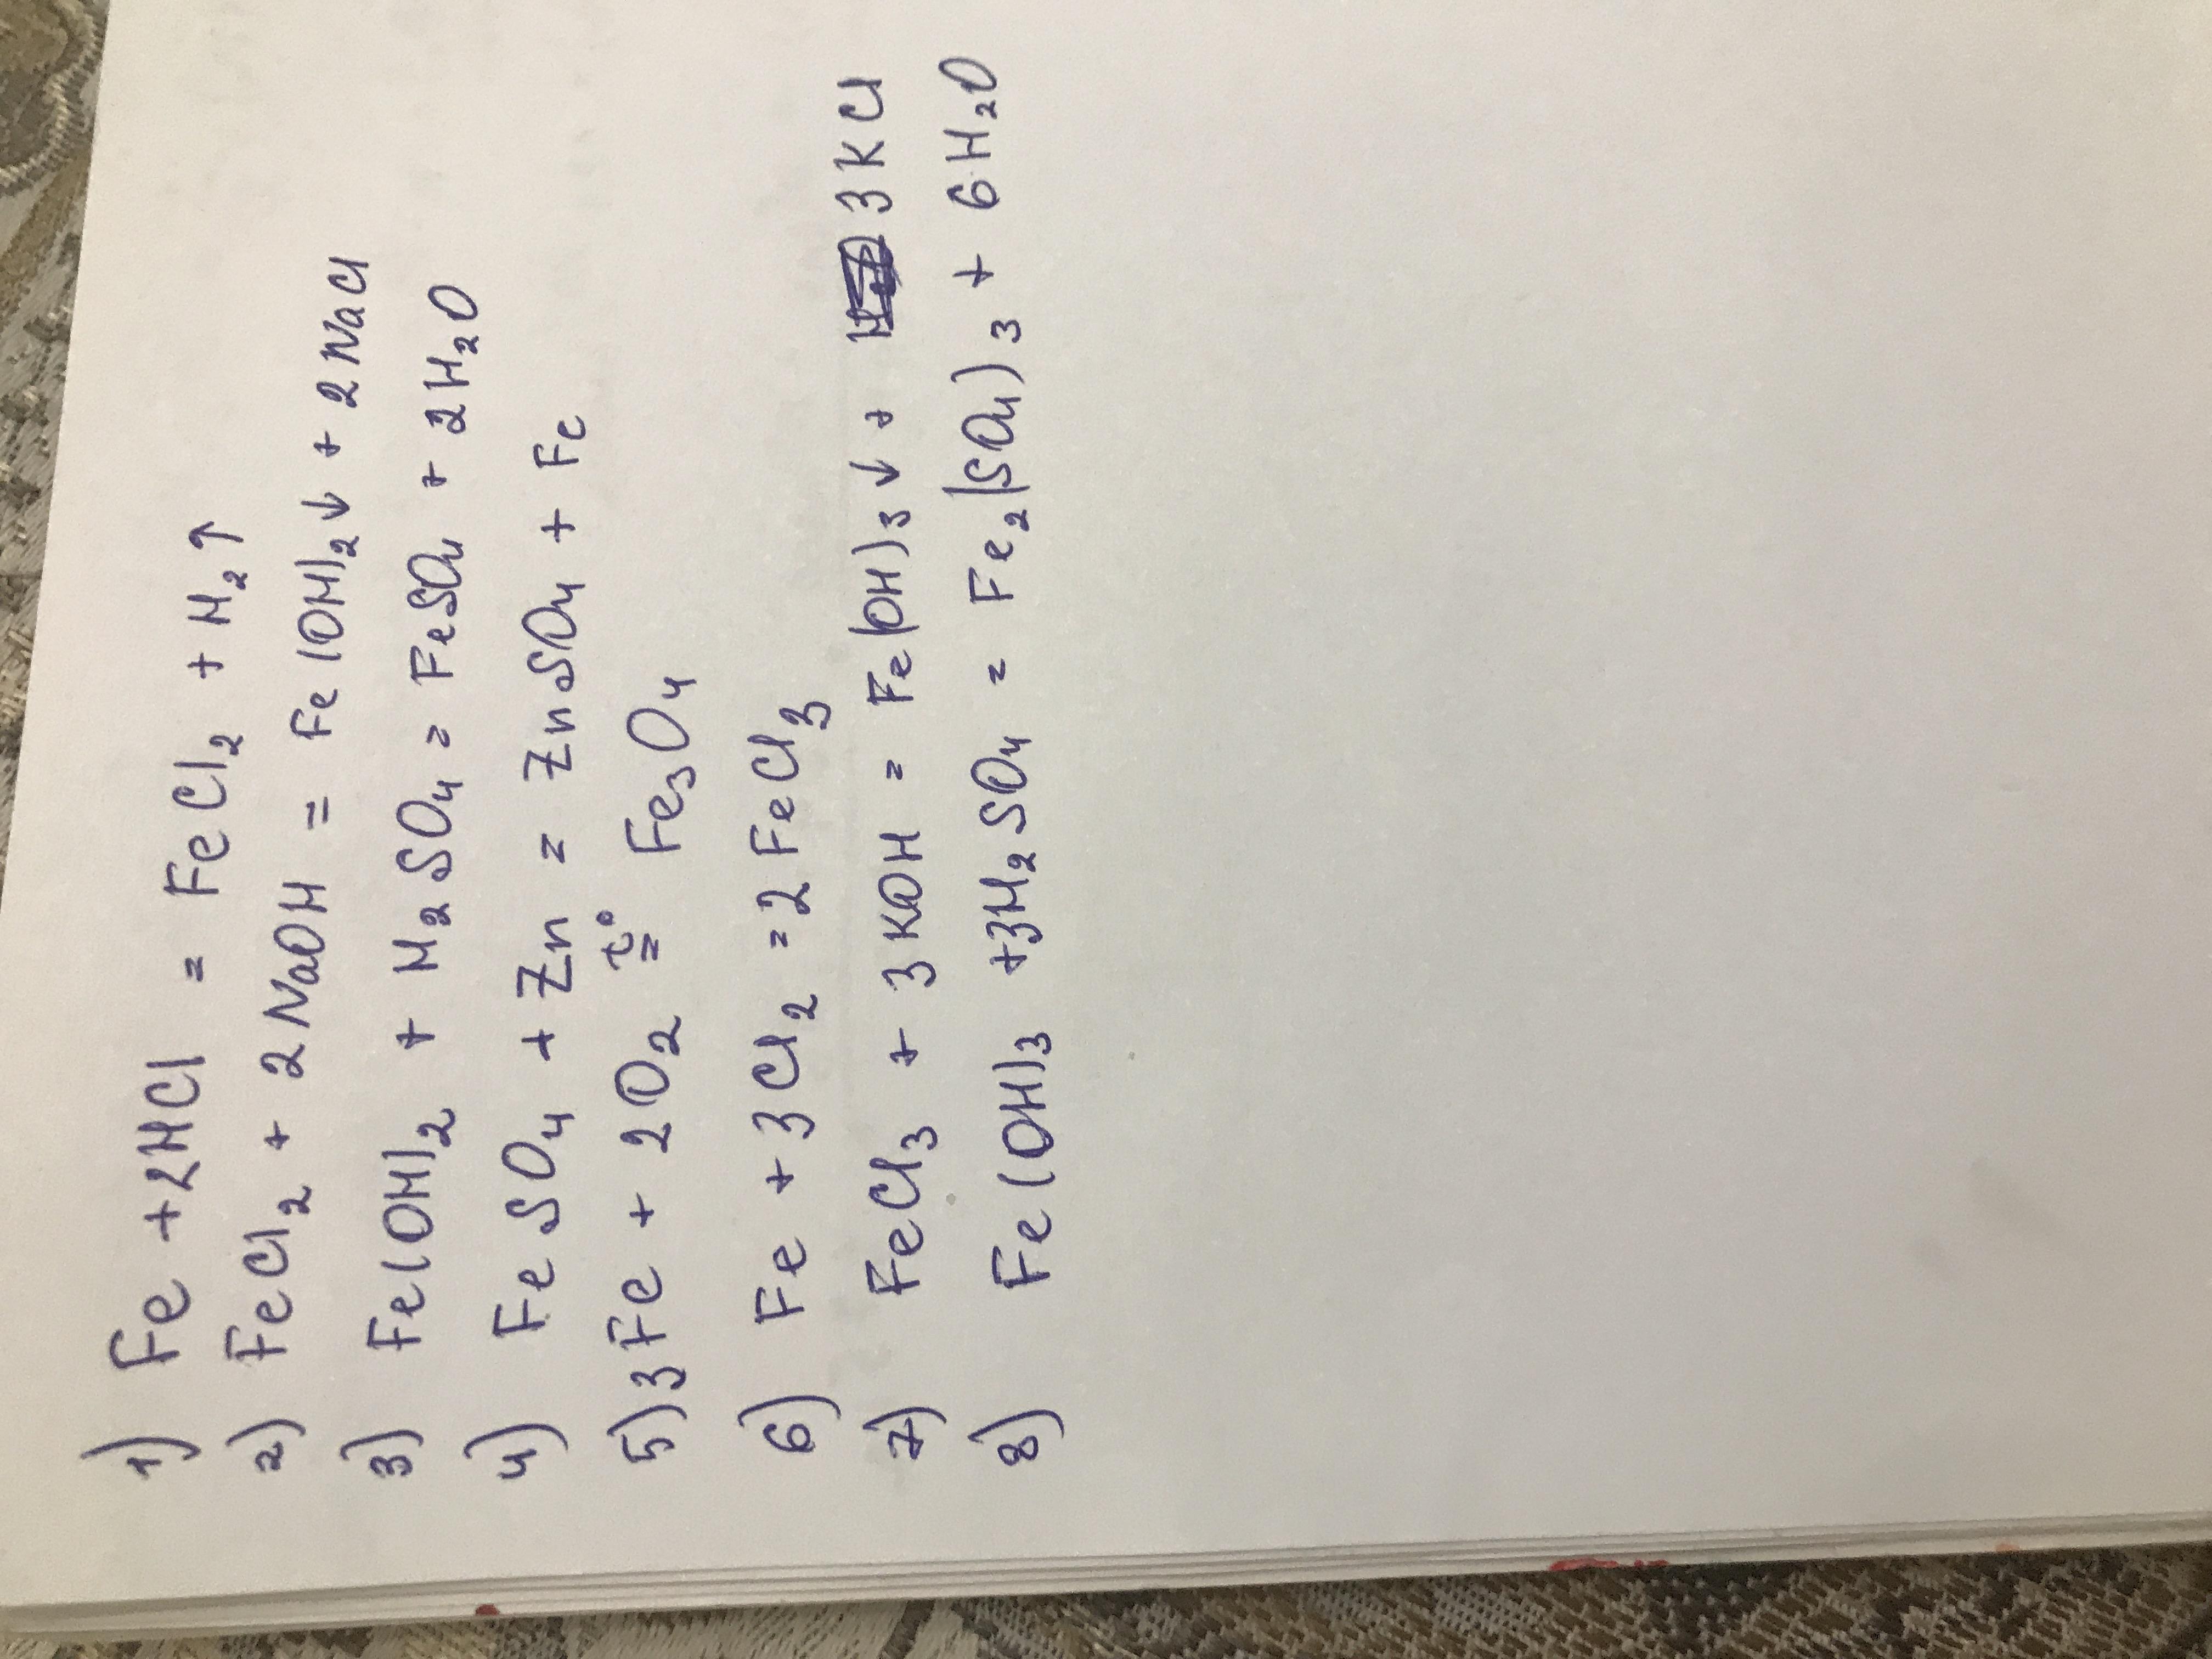 1) Fe + 2HCl = FeCl₂ + H₂↑
2) FeCl₂ + 2NaOH = Fe(OH)₂↓ + 2NaCl
3) Fe(OH)₂ + H₂SO₄ = FeSO₄ + 2H₂O
4) FeSO₄ + Zn = ZnSO₄ + Fe
5) 3Fe + 2O₂ =t° Fe₃O₄
6) Fe + 3Cl₂ = 2FeCl₃
7) FeCl₃ + 3KOH = Fe(OH)₃↓ + 3KCl
8) Fe(OH)₃ + 3H₂SO₄ = Fe₂(SO₄)₃ + 6H₂O